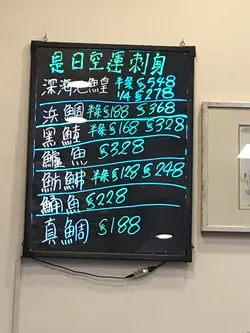 是日空運刺身
深海 鰉 半条$548
1/4 $278
浜鯛 半条$188 $368
黑鯥 半条$168 $328
鱸魚 $328
魴鮄 半条$128 $248
鯒魚 $228
真鯛 $188